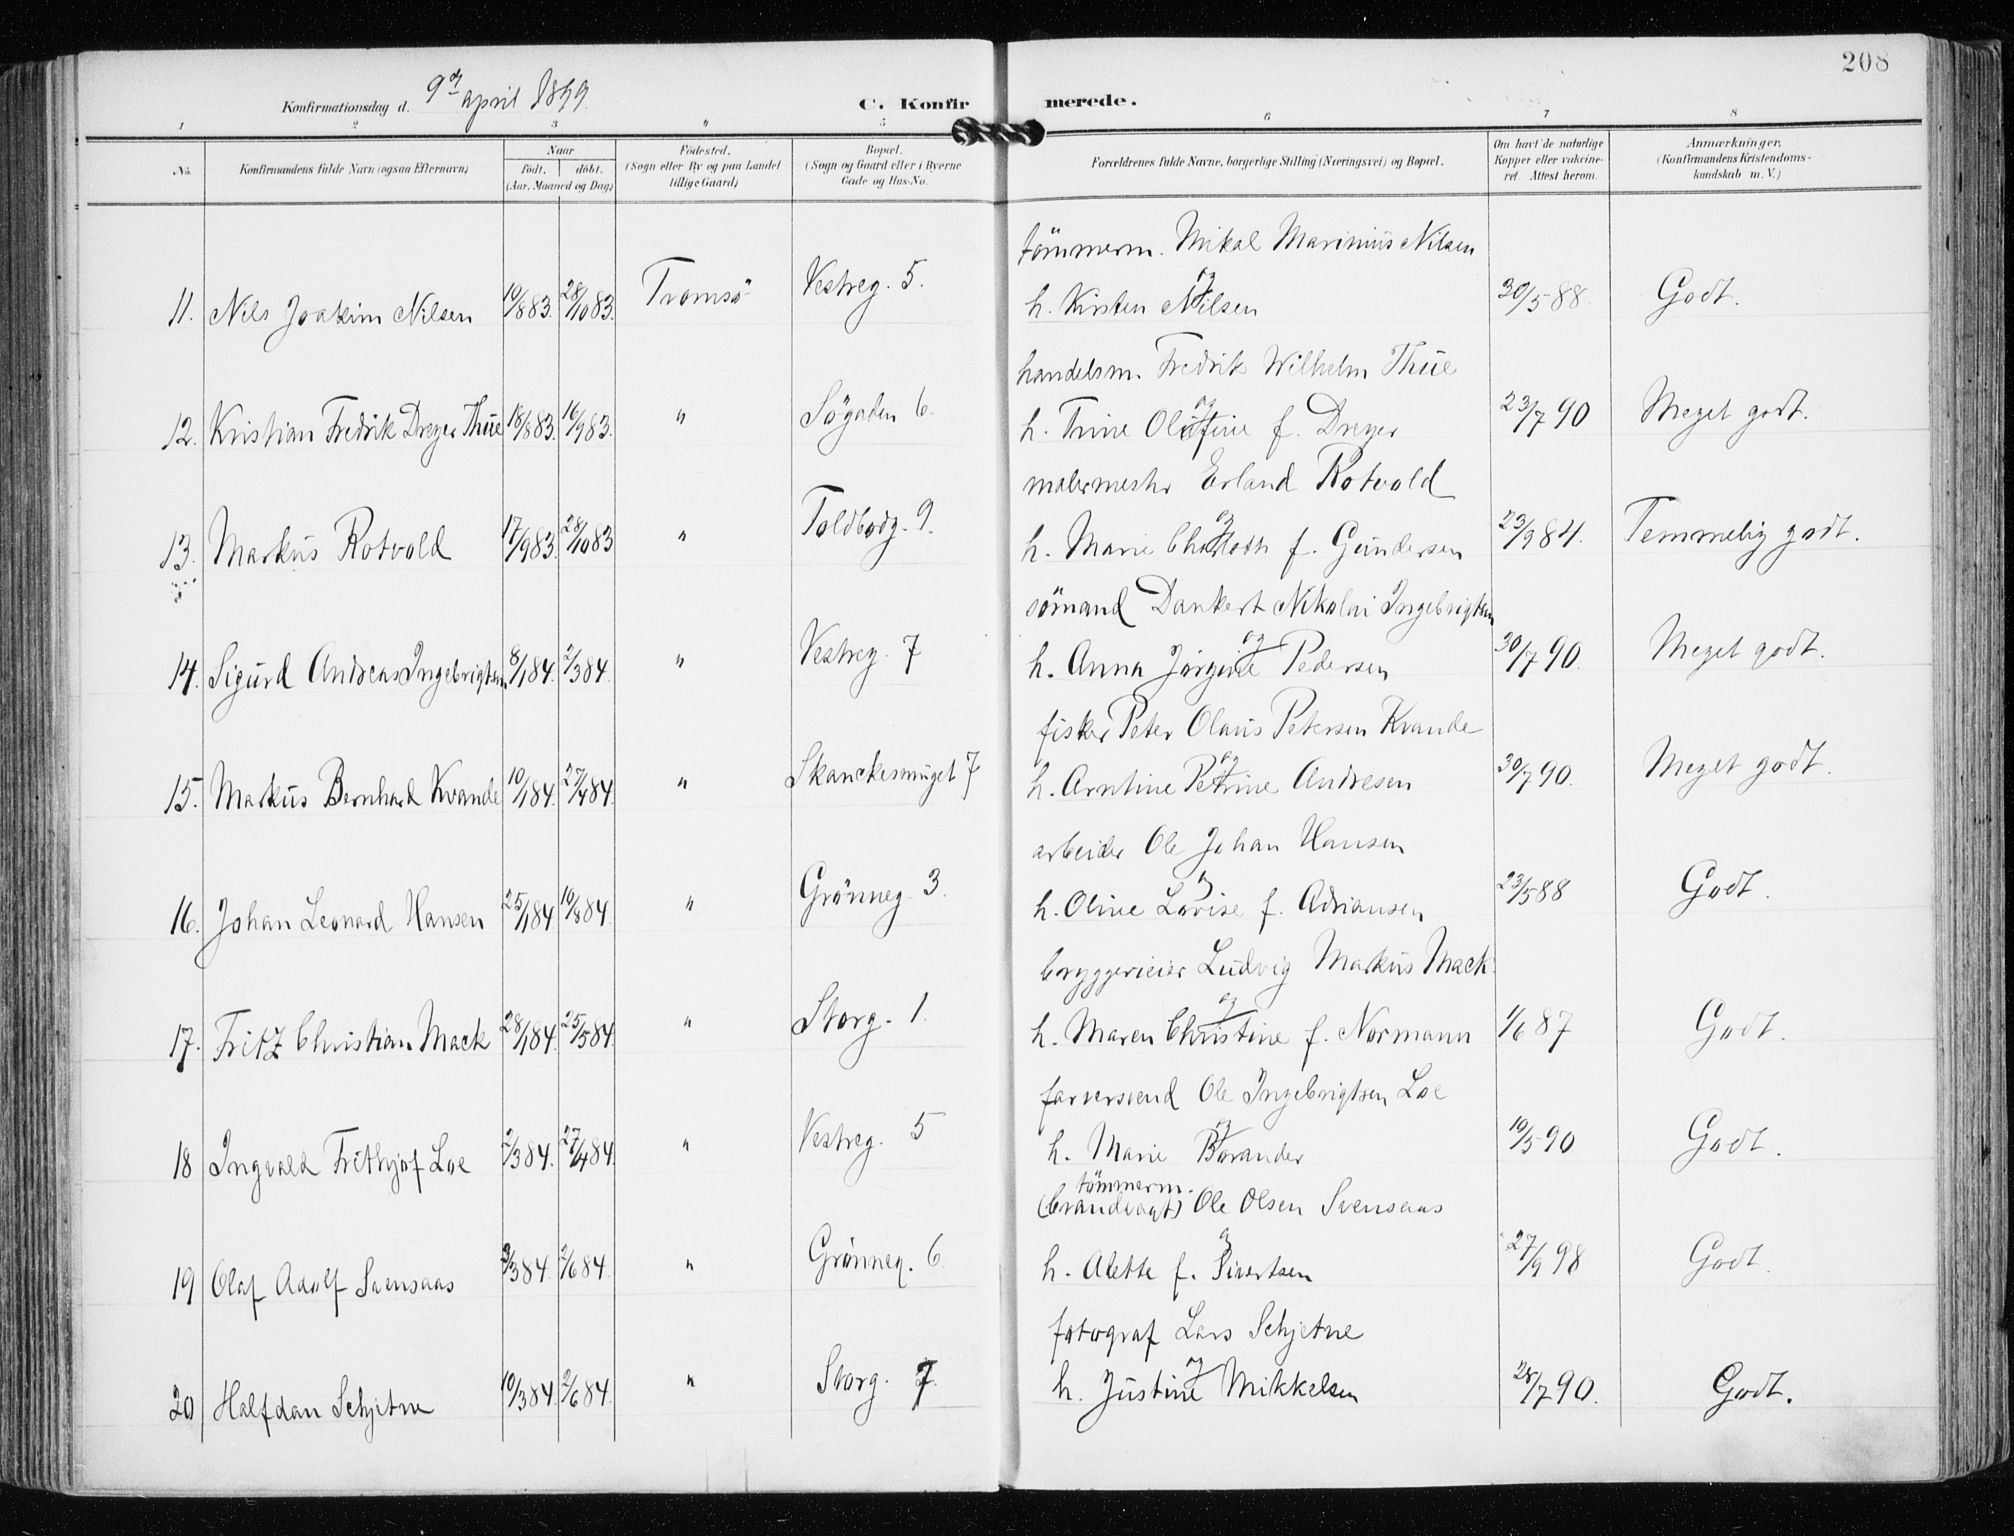 208
Konfirmationsdag d. 9d april 1899.
C. Konfirmerede.
1 2 3 " 5 6 7 8
No. Konfirmandens fulde Navn (ogsaa Efternavn) Naar født. døbt. (Aar, Maaned og Dag) Fødested. (Sogn eller By og paa Landet tillige Gaard) Bopæl. (Sogn og Gaard eller i Byerne Gade og Hus-No. Forældrenes fulde Navne, borgerlige Stilling (Næringsvei) og Bopæl. Om havt de naturlige Kopper eller vaksineret. Attest herom. Anmærkninger. (Konfirmandens Kristendomskundskab m. V.)
tömmerm. Mikal Marinius Nilsen
og
11. Nils Joakim Nilsen 10/883. 28/1083. Tromsö Vestreg. 5. h. Kirsten Nilsen 30/588. Godt.
handelsm. Fredrik Wilhelm Thue
og
12. Kristian Fredrik Dreyer Thue 18/883. 16/983. " Søgaden 6. h. Trine Olufine f. Dreyer 23/790 Meget godt.
malermester Erland Rotvold
og
13. Markus Rotvold 17/983. 28/1083 " Toldbodg. 9. h. Marie Charloth f. Gundersen 23/984. Temmelig godt.
sömand Dankert Nikolai Ingebrigtsen
og
14. Sigurd Andreas Ingebrigtsen 8/184. 2/384. " Vestreg. 7 h. Anna Jörgine Pedersen 30/790. Meget godt.
fisker Peter Olaus Petersen Kvande
og
15. Markus Bernhard Kvande 10/184. 27/484. " Skanckesmuget 7 h. Arntine Petrine Andresen 30/790. Meget godt.
arbeider Ole Johan Hansen
og
16. Johan Leonard Hansen 25/184. 10/884. " Grönneg. 3. h. Oline Lovise f. Adriansen 23/588 Godt.
bryggerieier Ludvig Markus Mack
og
17. Fritz Christian Mack 28/184. 25/584. " Storg. 1. h. Maren Christine f. Normann 1/687 Godt.
farversvend Ole Ingebrigtsen Loe
og
18 Ingvald Frithjof Loe 2/384. 27/484. " Vestreg. 5 h. Marie Barander 19/590 Godt.
tömmerm.
(brandvagt) Ole Olsen Svensaas
og
19 Olaf Adolf Svensaas 3/384. 2/684. " Grönneg. 6. h. Alette f. Sivertsen 27/998 Godt.
fotograf Lars Schjetne
og
20 Halfdan Schjetne 10/384. 2/684. " Storg. 7. h. Justine Mikkelsen 28/790. Godt.